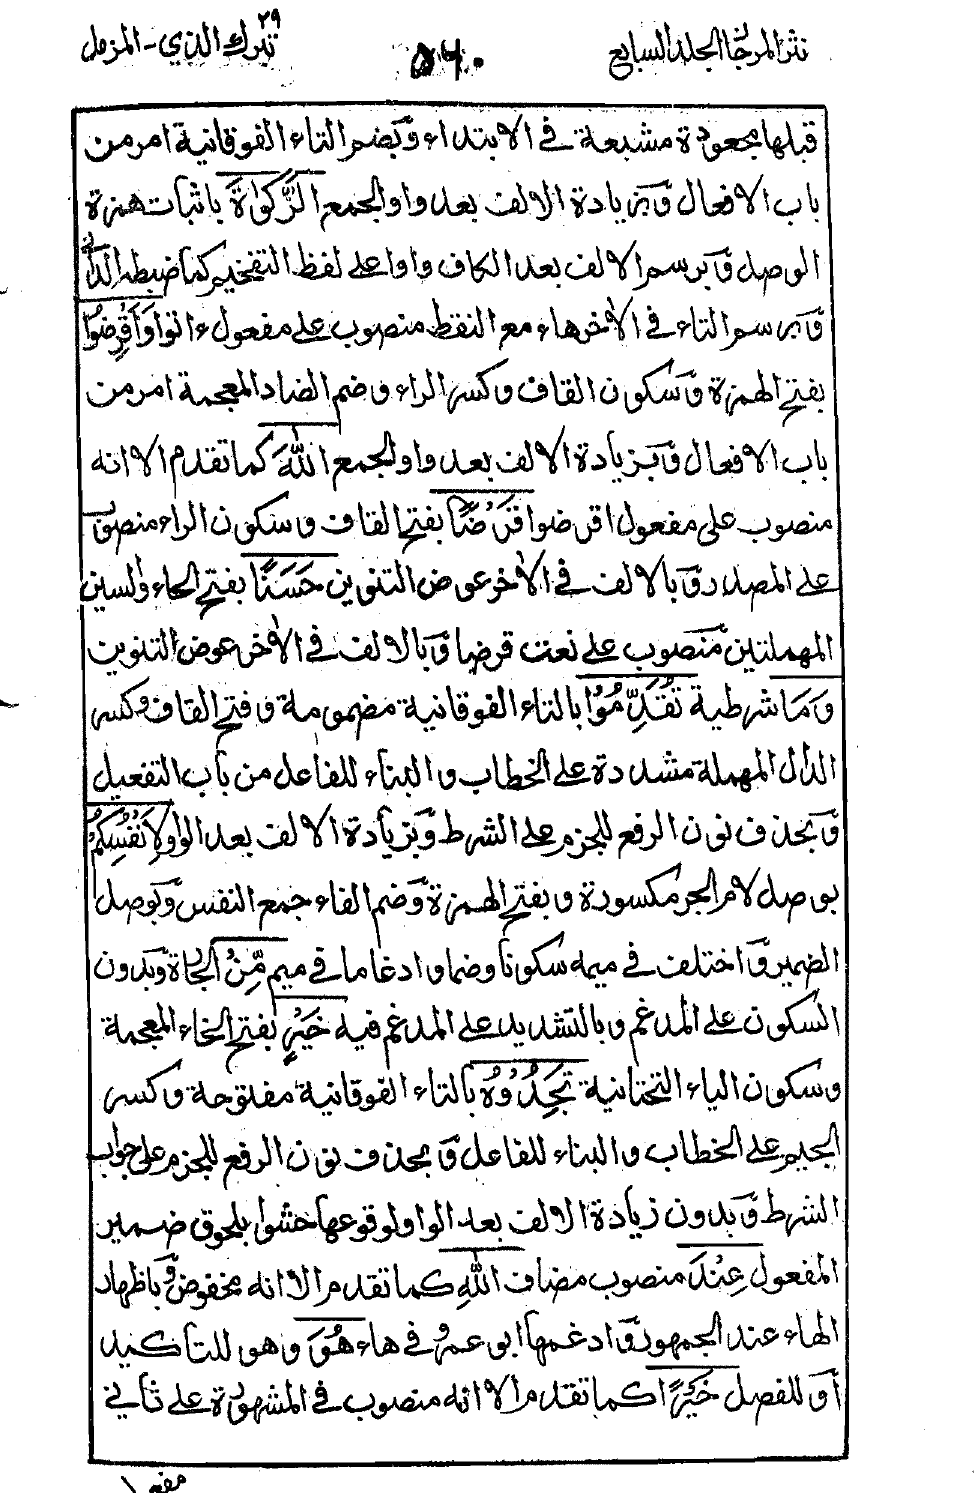 نثر المرجان الجلد السابع
٥٦٠
تبرك الذي ٢٩ - المزمل
قبلها مجعودة مشبعة في الابتداء وَبضم التاء الفوقانية امر من
باب الافعال وَبزيادة الالف بعد واو الجمع الزَّكوٰةَ باثبات همزة
الوصل وَبرسم الالف بعد الكاف واوا على لفظ التفخيم كما ضبطه الداني
وَبرسم التاء في الاٰخر هاء مع النقط منصوب على مفعول ءاتوا وَاَقْرِضُوا
بفتح الهمزة وَسكون القاف وكسر الراء وضم الضاد المعجمة امر من
باب الافعال وَبزيادة الالف بعد واو الجمع اللّٰهَ كما تقدم الا انه
منصوب على مفعول اقرضوا قَرْضًا بفتح القاف وسكون الراء منصوب
على المصدر وَبالالف في الاٰخر عوض التنوين حَسَنًا بفتح الحاء والسين
المهملتين منصوب على نعت قرضا وَبالالف في الاٰخر عوض التنوين
وَمَا شرطية تُقَدِّمُوْا بالتاء الفوقانية مضمومة وفتح القاف وكسر
الدال المهملة مشددة على الخطاب والبناء للفاعل من باب التفعيل
وَبحذف نون الرفع للجزم على الشرط وَبزيادة الالف بعد الواو لِاَنْفُسِكُمْ
بوصل لام الجر مكسورة وبفتح الهمزة وَضم الفاء جمع النفس وَبوصل
الضمير وَاختلف في ميمه سكونا وضما وادغاما في ميم مِّنْ الجارة وَبدون
السكون على المدغم وبالتشديد على المدغم فيه خَيْرٍ بفتح الخاء المعجمة
وسكون الياء التحتانية تَجِدُوْهُ بالتاء الفوقانية مفتوحة وكسر
الجيم على الخطاب والبناء للفاعل وَبحذف نون الرفع للجزم على جواب
الشرط وَبدون زيادة الالف بعد الواو لوقوعها حشوا بلحوق ضمير
المفعول عِنْدَ منصوب مضاف اللّٰهِ كما تقدم الا انه مخفوض وَباظهار
الهاء عند الجمهور وَادغمها ابو عمرو في هاء هُوَ وهو للتاكيد
أو للفصل خَيْرًا كما تقدم الا انه منصوب في المشهورة على ثاني